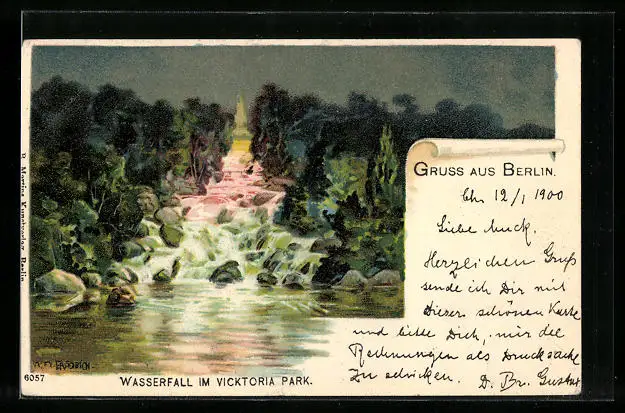 GRUSS AUS BERLIN.
Ch. 12/1 1900
Liebe Muck.
Herzlichen Gruß
sende ich Dir mit
dieser schönen Karte
und bitte Dich, mir die
Rechnungen als Drucksache
zu schicken. D. Br. Gustav
WASSERFALL IM VICKTORIA PARK.
6057
Kunstverlag Berlin